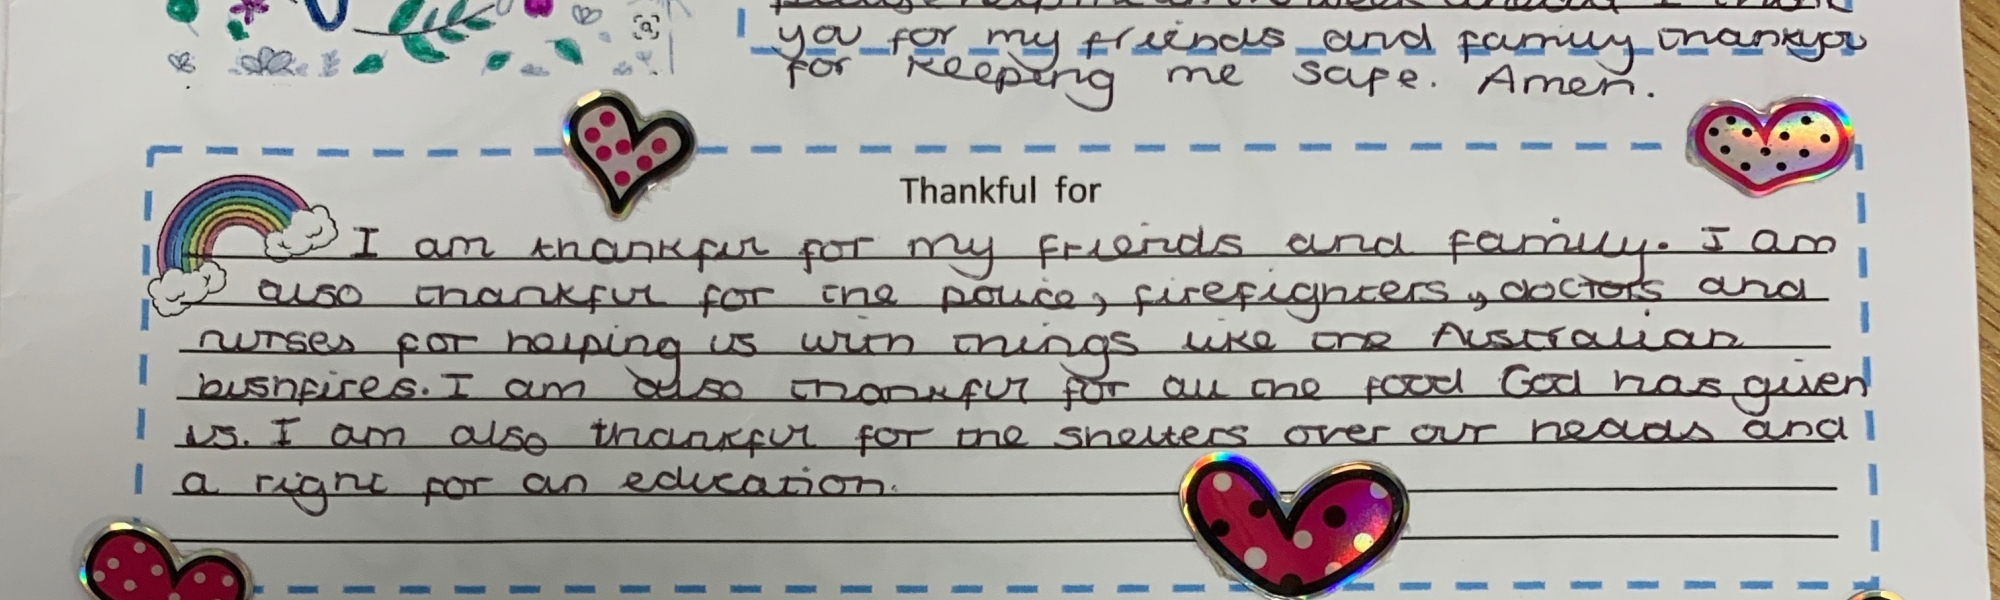 please help me in the week ahead I thank
you for my friends and family thankyou
for keeping me safe. Amen.
Thankful for
I am thankful for my friends and family. I am
also thankful for the police, firefighters, doctors and
nurses for helping us with things like the Australian
bushfires. I am also thankful for all the food God has given
us. I am also thankful for the shelters over our heads and
a right for an education.